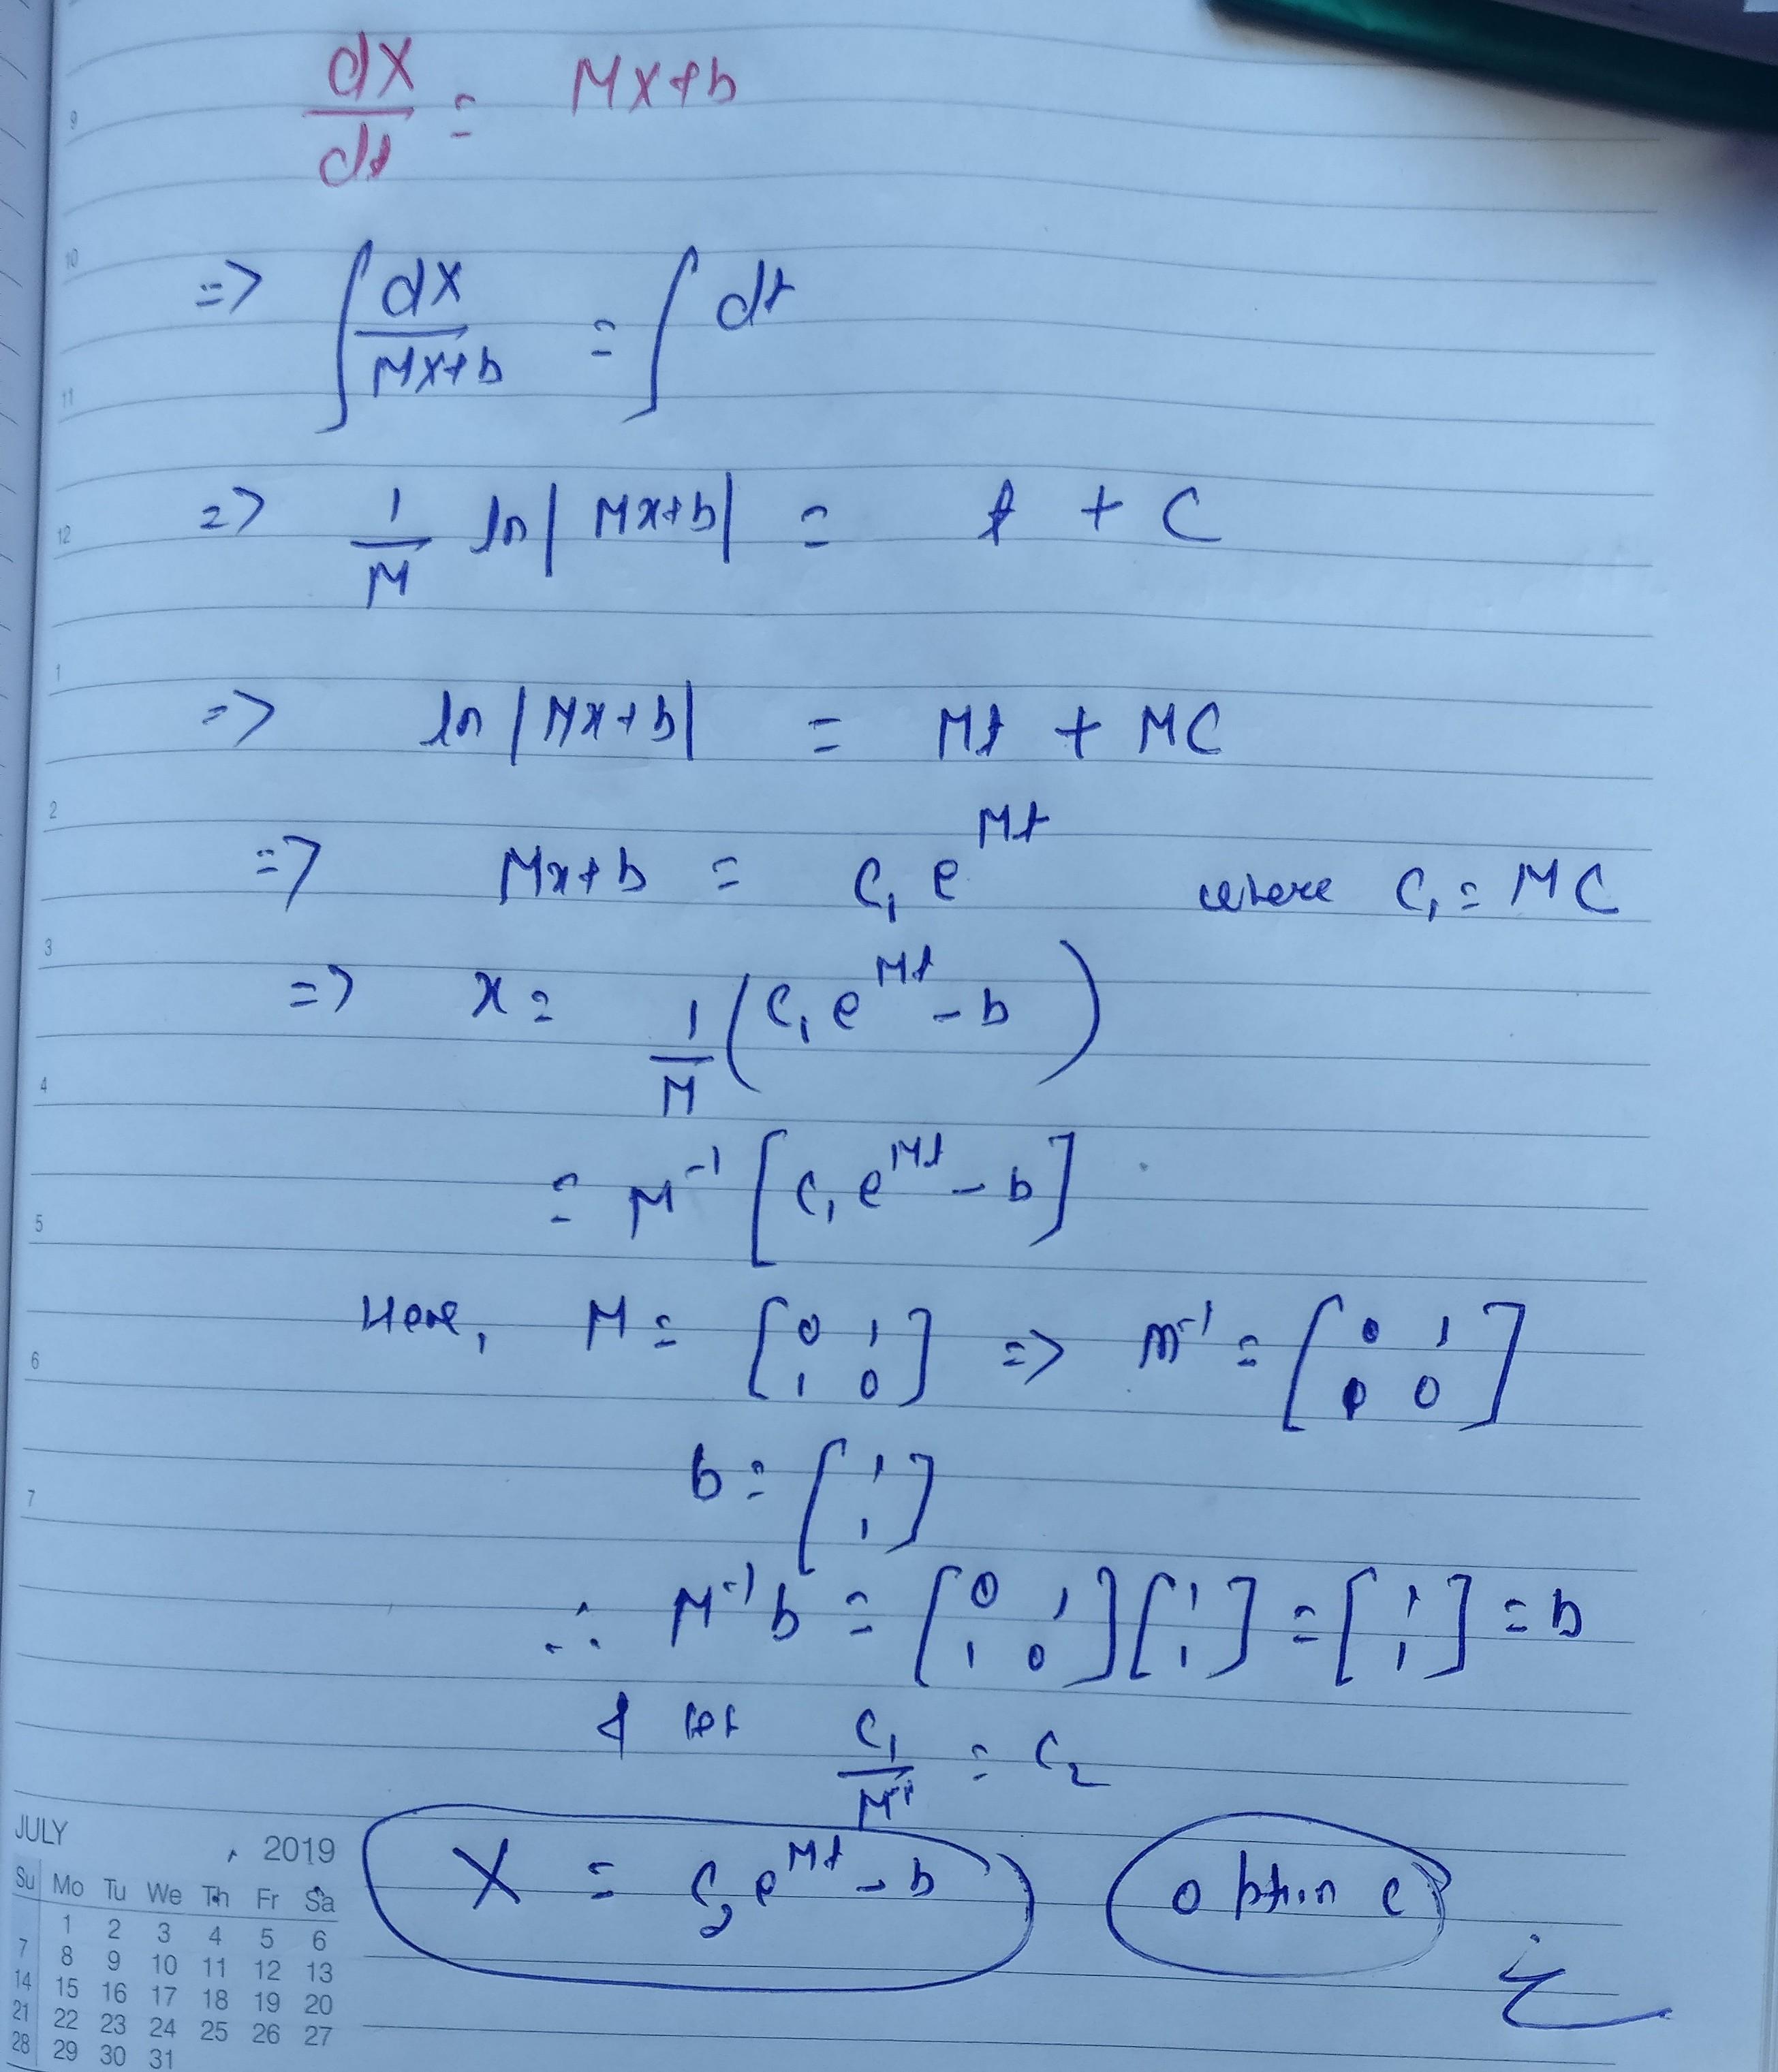 dX/dt = MX+b
9
=> ∫ dX/(MX+b) = ∫ dt
10
11
=> 1/M ln|Mx+b| = t + C
12
=> ln|Mx+b| = Mt + MC
1
2
=> Mx+b = C₁e^Mt where C₁ = MC
3
=> x = 1/M (C₁e^Mt - b)
4
= M⁻¹ [C₁e^Mt - b]
5
Here, M = [0 1; 1 0] => m⁻¹ = [0 1; 0 0]
6
b = [1; 1]
7
∴ M⁻¹b = [0 1; 1 0][1; 1] = [1; 1] = b
& let C₁/M = C₂
X = C₂e^Mt - b option c
JULY 2019
Su Mo Tu We Th Fr Sa
1 2 3 4 5 6
7 8 9 10 11 12 13
14 15 16 17 18 19 20
21 22 23 24 25 26 27
28 29 30 31